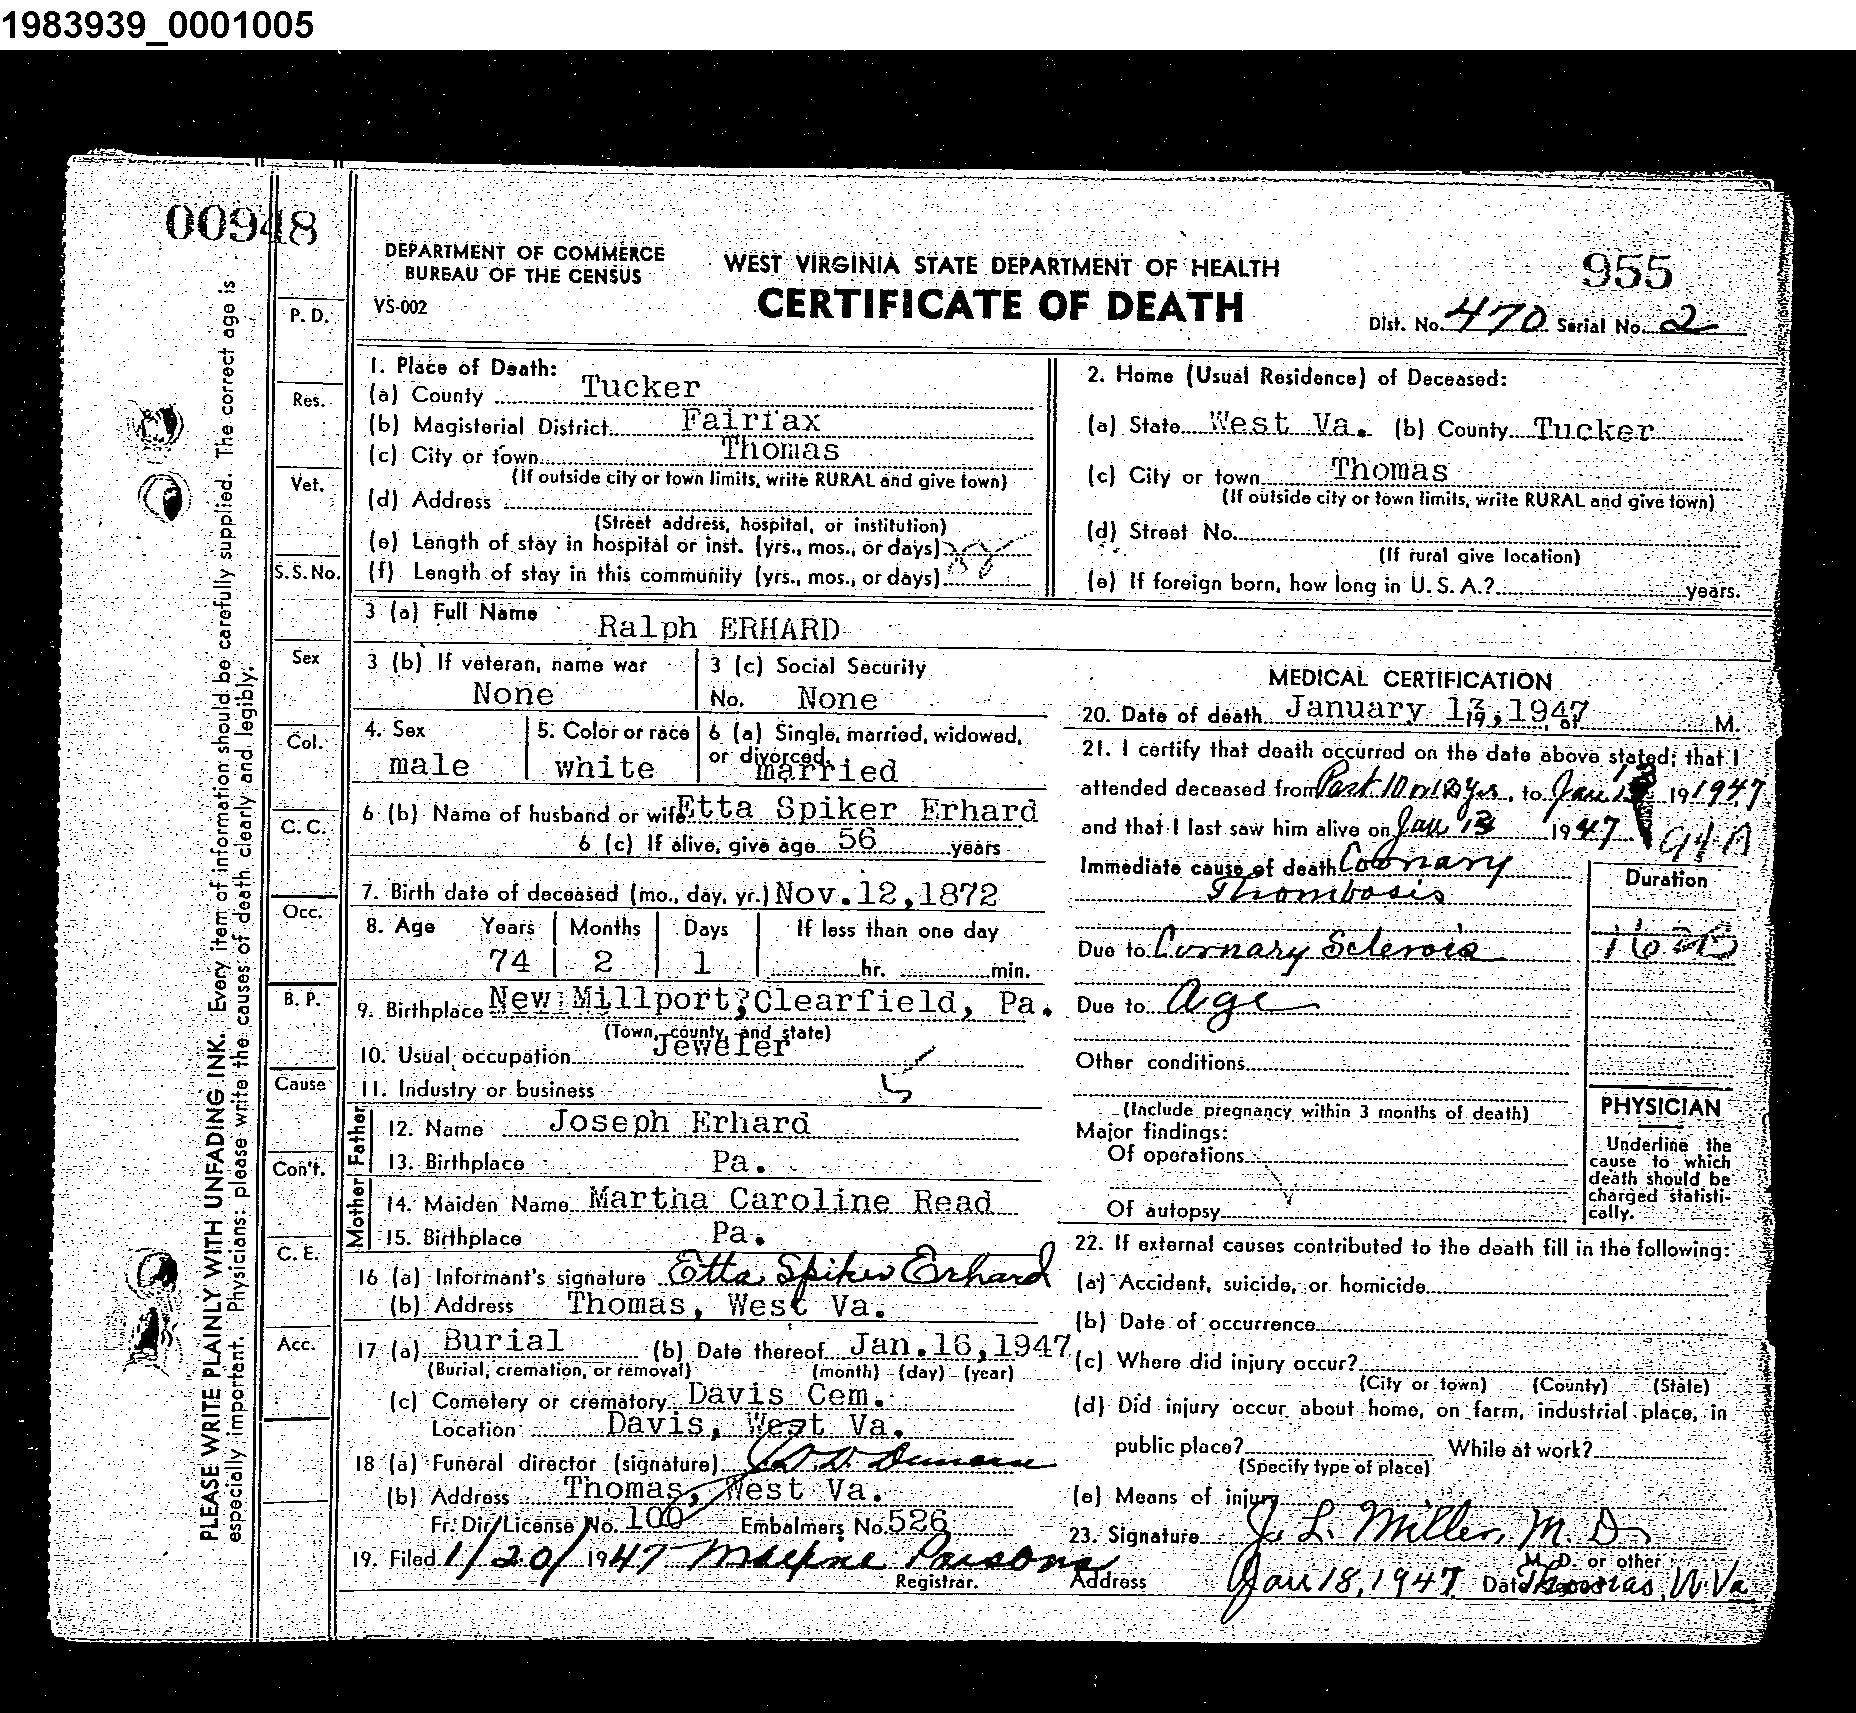 1983939_0001005
00948
DEPARTMENT OF COMMERCE
BUREAU OF THE CENSUS
VS-002
WEST VIRGINIA STATE DEPARTMENT OF HEALTH
CERTIFICATE OF DEATH
955
Dist. No. 470 Serial No. 2
P. D.
Res.
Vet.
S.S.No.
Sex
Col.
C. C.
Occ.
B. P.
Cause
Con't.
C. E.
Acc.
PLEASE WRITE PLAINLY WITH UNFADING INK. Every item of information should be carefully supplied. The correct age is
especially important. Physicians: please write the causes of death clearly and legibly.
1. Place of Death:
(a) County Tucker
(b) Magisterial District Fairfax
(c) City or town Thomas
(If outside city or town limits, write RURAL and give town)
(d) Address
(Street address, hospital, or institution)
(e) Length of stay in hospital or inst. (yrs., mos., or days)
(f) Length of stay in this community (yrs., mos., or days)
2. Home (Usual Residence) of Deceased:
(a) State West Va. (b) County Tucker
(c) City or town Thomas
(If outside city or town limits, write RURAL and give town)
(d) Street No.
(If rural give location)
(e) If foreign born, how long in U. S. A.? years.
3 (a) Full Name Ralph ERHARD
3 (b) If veteran, name war
None
3 (c) Social Security
No. None
4. Sex
male
5. Color or race
white
6 (a) Single, married, widowed,
or divorced.
married
6 (b) Name of husband or wife Etta Spiker Erhard
6 (c) If alive, give age 56 years
7. Birth date of deceased (mo., day, yr.) Nov.12,1872
8. Age Years Months Days If less than one day
74 2 1 hr. min.
9. Birthplace New Millport, Clearfield, Pa.
(Town, county, and state)
10. Usual occupation Jeweler
11. Industry or business
Father
12. Name Joseph Erhard
13. Birthplace Pa.
Mother
14. Maiden Name Martha Caroline Read
15. Birthplace Pa.
16 (a) Informant's signature Etta Spiker Erhard
(b) Address Thomas, West Va.
17 (a) Burial (b) Date thereof Jan.16,1947
(Burial, cremation, or removal) (month) (day) (year)
(c) Cemetery or crematory Davis Cem.
Location Davis, West Va.
18 (a) Funeral director (signature)
(b) Address Thomas, West Va.
Fr. Dir. License No. 100 Embalmers No. 526
19. Filed 1/20/ 1947 Maxine Parsons
Registrar.
MEDICAL CERTIFICATION
20. Date of death January 13, 1947 19 , at M.
21. I certify that death occurred on the date above stated; that I
attended deceased from Past 10 or 12 yrs., to Jan 13 19 1947
and that I last saw him alive on Jan 13 1947
Immediate cause of death Coonary
Thombosis
Due to Cornary Sclerois
Due to Age
Duration
Other conditions
(Include pregnancy within 3 months of death)
Major findings:
Of operations
Of autopsy
PHYSICIAN
Underline the
cause to which
death should be
charged statisti-
cally.
22. If external causes contributed to the death fill in the following:
(a) Accident, suicide, or homicide
(b) Date of occurrence
(c) Where did injury occur?
(City or town) (County) (State)
(d) Did injury occur about home, on farm, industrial place, in
public place? While at work?
(Specify type of place)
(e) Means of injury
23. Signature J. L. Miller, M. D.
M. D. or other
Address Jan 18, 1947 Date Thomas, W. Va